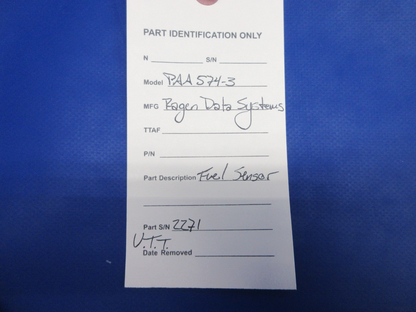 PART IDENTIFICATION ONLY
N ________ S/N ________
Model PAA574-3
MFG Ragen Data Systems
TTAF ________
P/N ________
Part Description Fuel Sensor
Part S/N 2271
U.T.T.
Date Removed ________